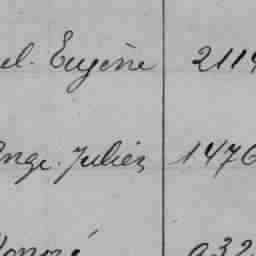 el. Eugène 2114
Ange. Julien 1476
Honoré 932